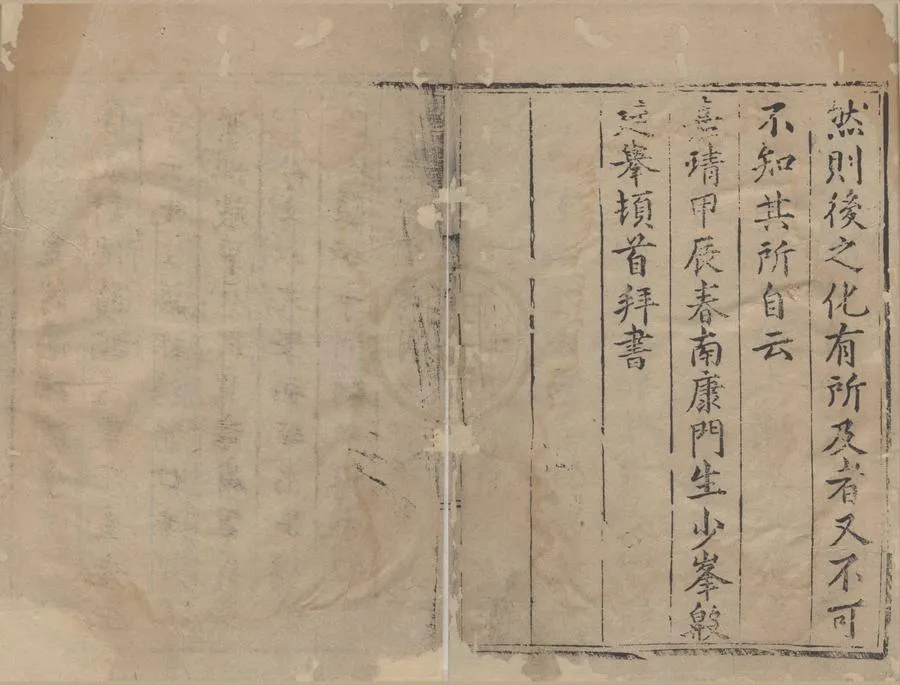 然則後之化有所及者又不可
不知其所自云
嘉靖甲辰春南康門生少峯殷
廷舉頓首拜書